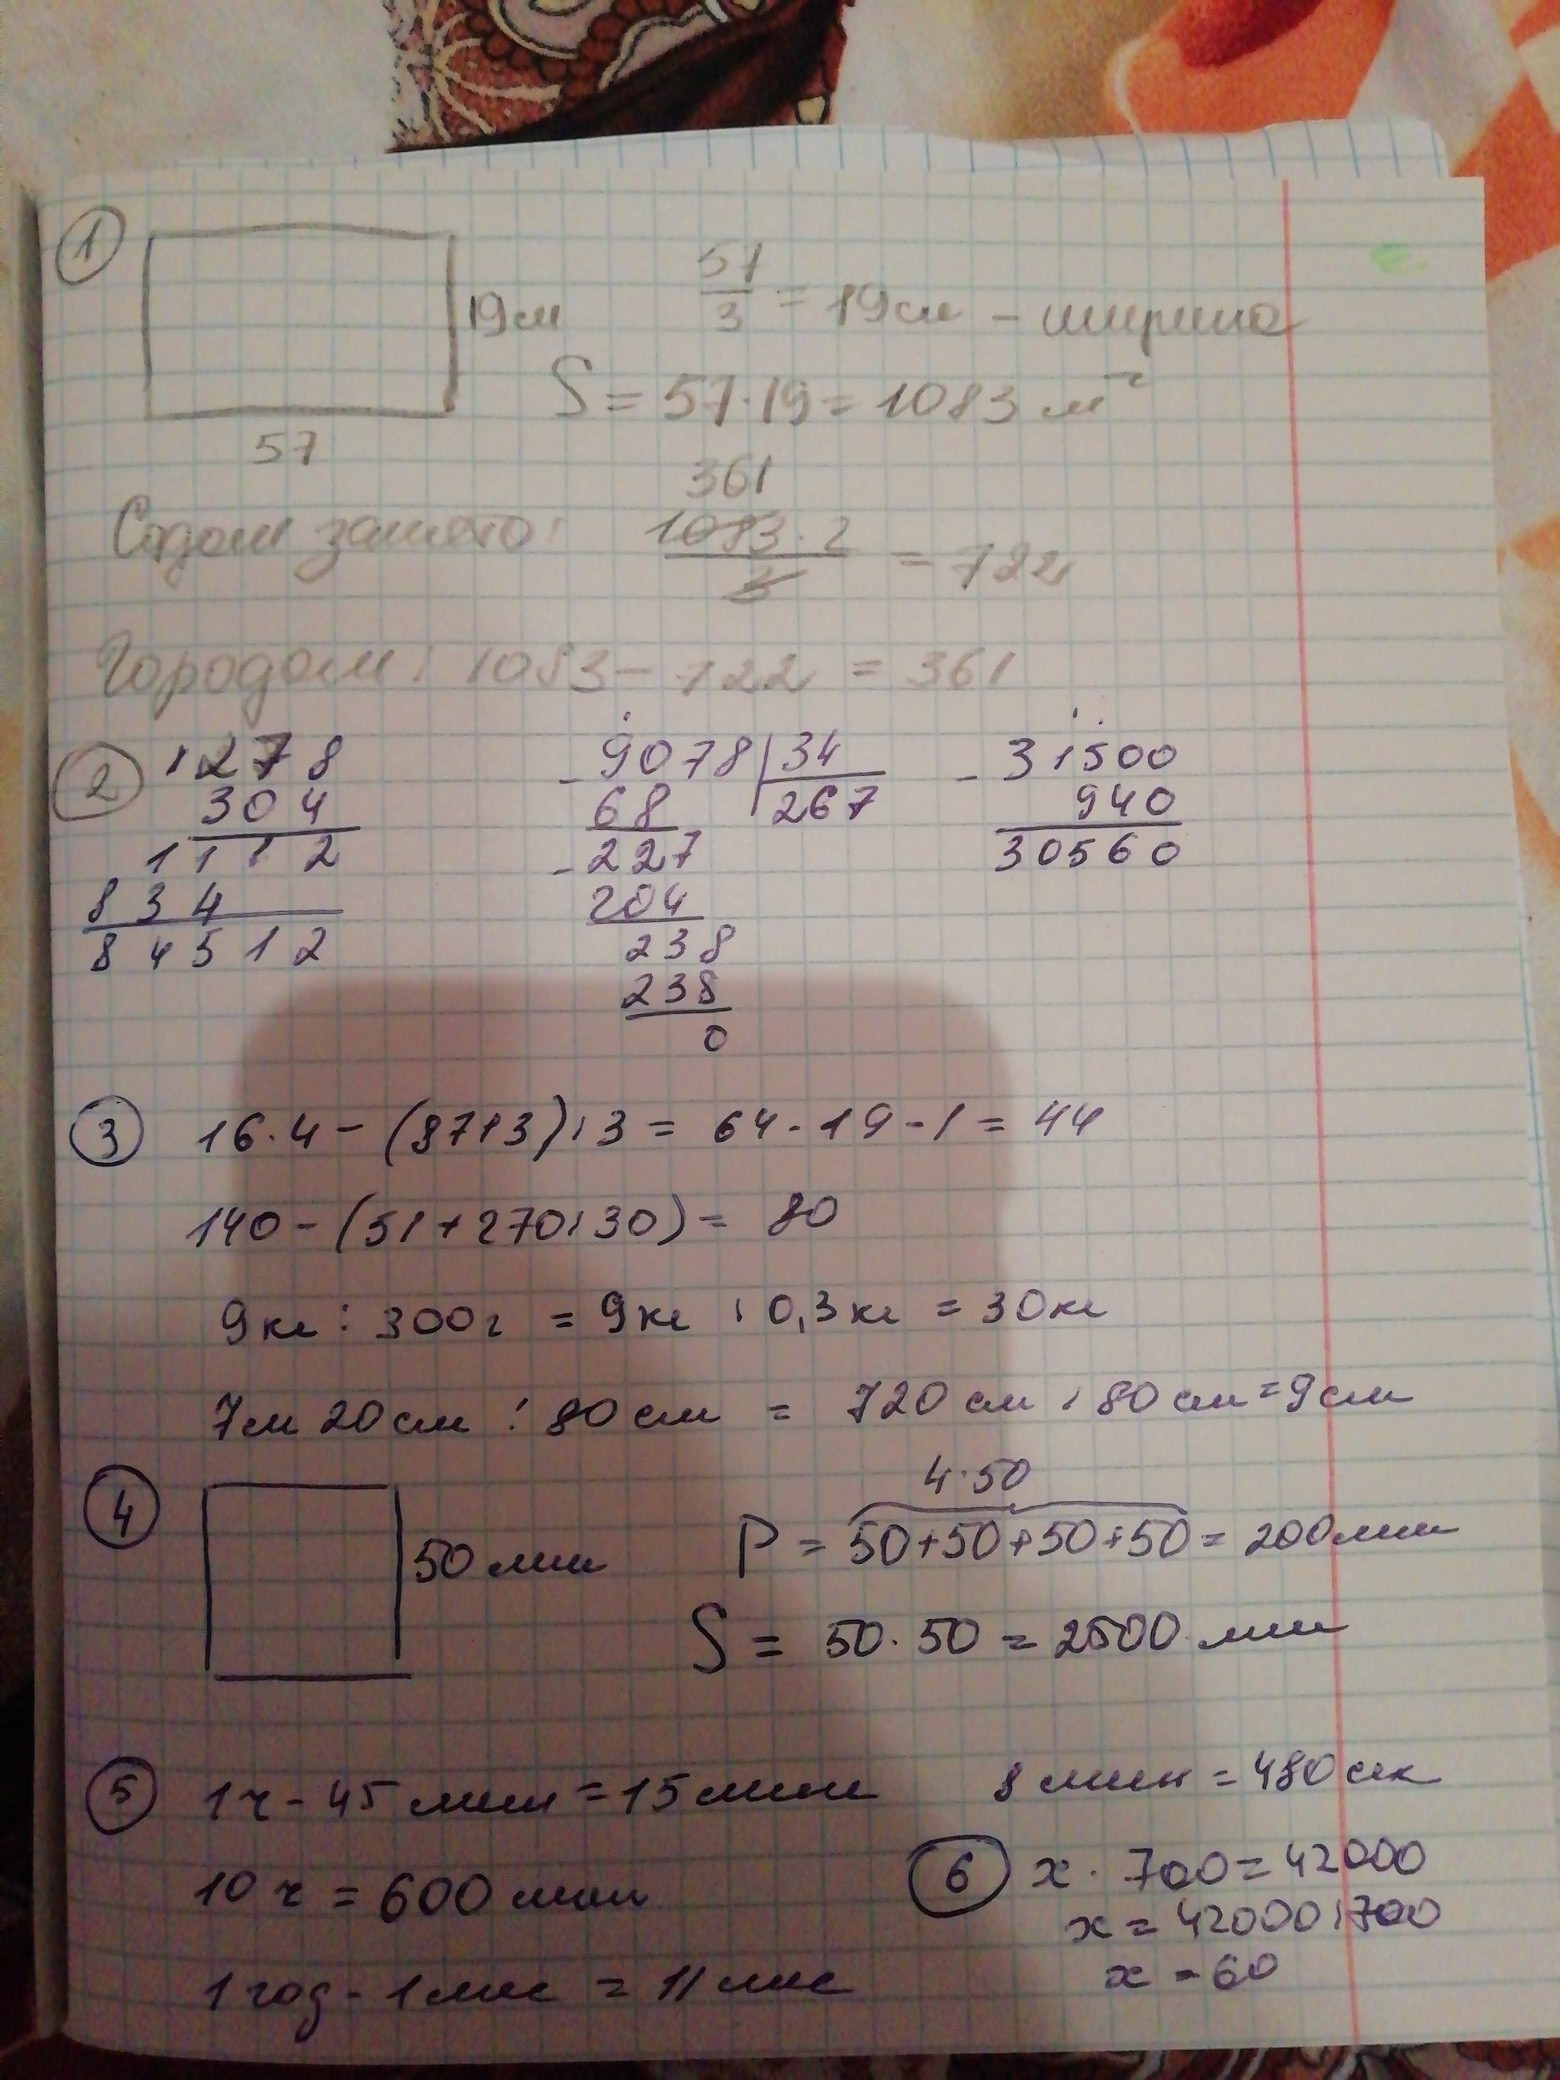 1
19 см
57
57/3 = 19 см - ширина
S = 57·19 = 1083 м²
361
Садом занято: 1083·2/3 = 722
Городом: 1083 - 722 = 361
2
1278
304
1112
834
84512
- 9078 | 34
68 267
- 227
204
238
238
0
- 31500
940
30560
3
16·4 - (87+3):3 = 64-19-1 = 44
140 - (51+270:30) = 80
9 кг : 300 г = 9 кг : 0,3 кг = 30 кг
7 м 20 см : 80 см = 720 см : 80 см = 9 см
4
50 мм
4·50
P = 50+50+50+50 = 200 мм
S = 50·50 = 2500 мм
5
1 ч - 45 мин = 15 мин
8 мин = 480 сек
10 ч = 600 мин
1 год - 1 мес = 11 мес
6
x · 700 = 42000
x = 42000:700
x = 60